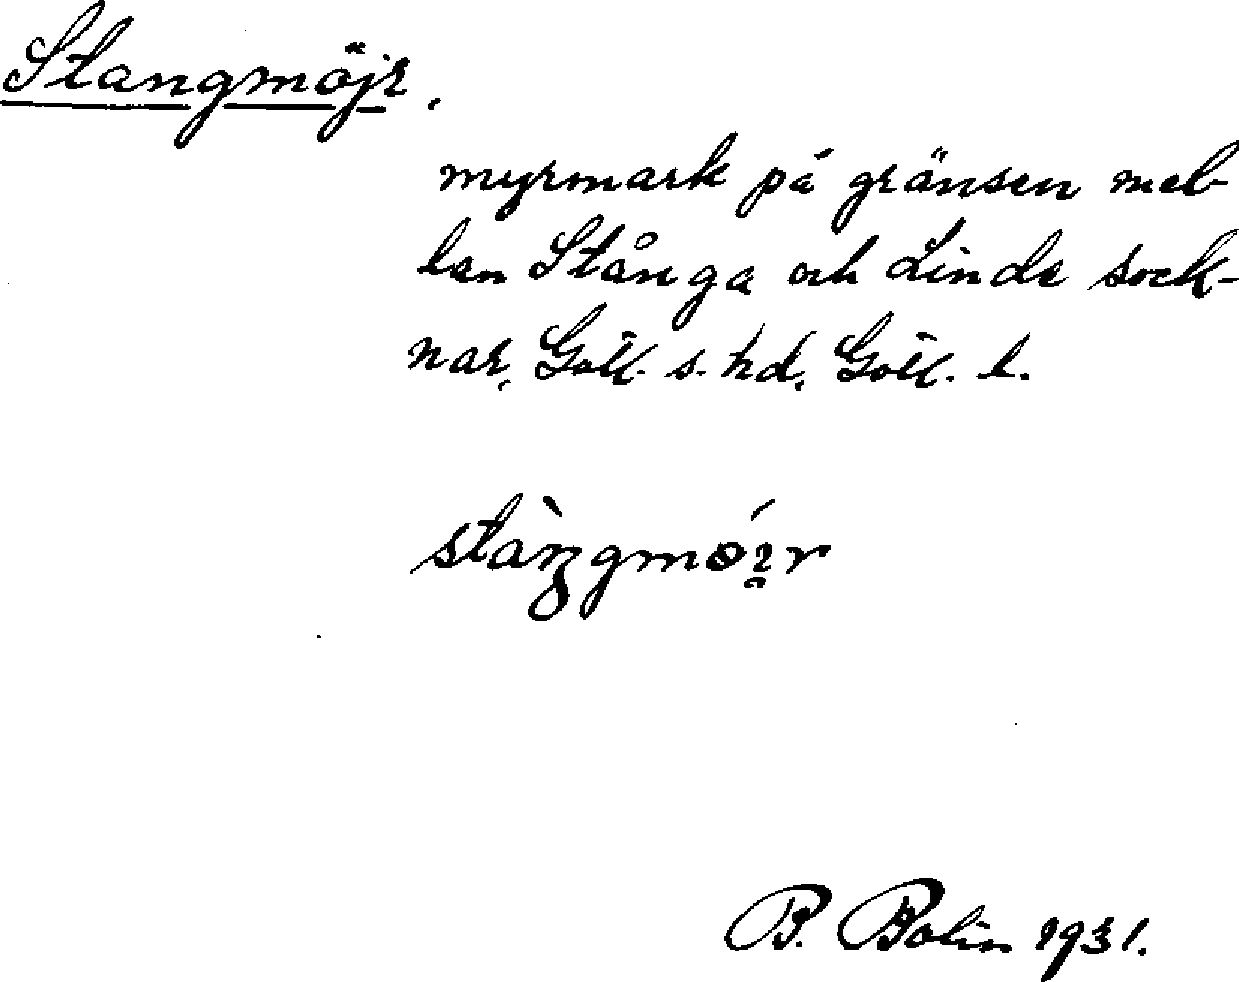 Stangmöjr.
myrmark på gränsen mel-
lan Stånga och Linde sock-
nar, Gotl. s. hd, Gotl. l.
B. Bolin 1931.